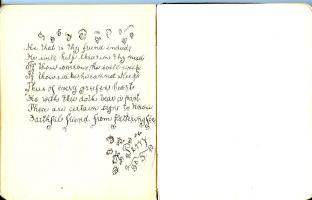 He that is thy friend indeed,
He will help thee in thy need
If thou sorrow, he will weep
If thou wake he cannot sleep
Thus of every grief in heart
He with thee doth bear a part
These are certain signs to know
Faithful friend from flattering foe